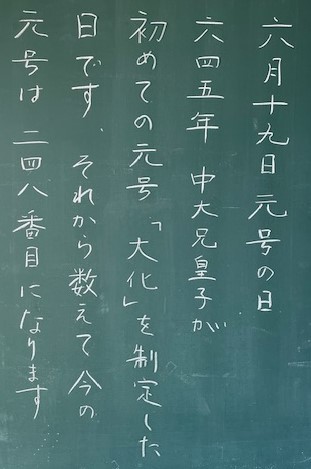 六月十九日 元号の日
六四五年 中大兄皇子が
初めての元号「大化」を制定した
日です、それから数えて今の
元号は 二四八番目になります